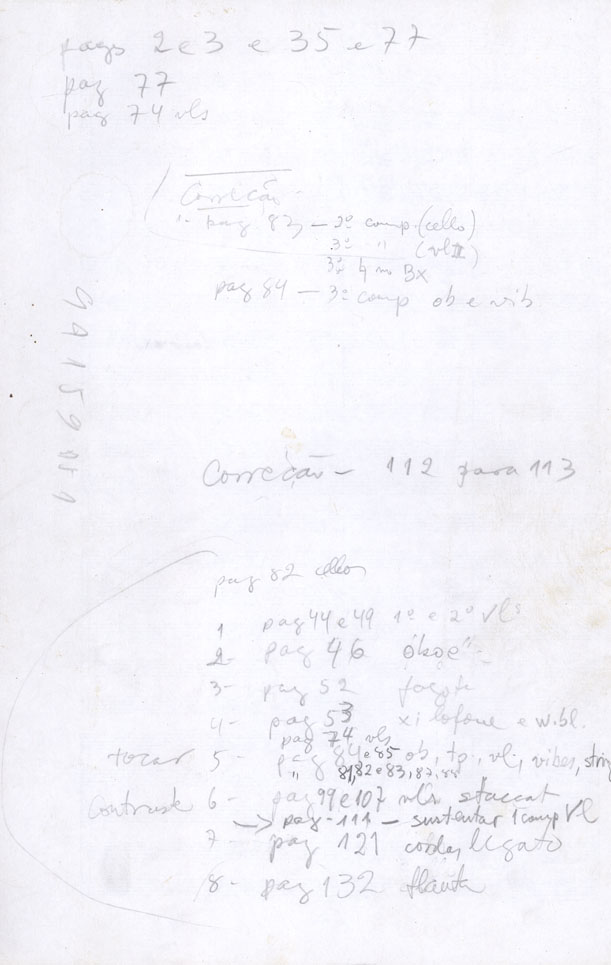 pags 2 e 3 e 35 e 77
pag 77
pag 74 vls
Correcão
1- pag 82, - 2º comp. (cello)
3º " (vl II)
3º 4 no Bx
pag 84 - 3º comp ob e vib
Correcão - 112 para 113
pag 82 cellos
1 pag 44 e 49 1º e 2º vls
2- pag 46 oboé
3- pag 52 fagote
4- pag 53 xilofone e w.bl.
pag 74 vls
tocar 5- pag 84 e 85 ob, tp, vl, vibes, string
" 81, 82 e 83, 87, 88
contraste 6- pag 99 e 107 vls staccat
→ pag - 111 - sustentar 1 comp Vl
7- pag 121 cordas legato
8- pag 132 flauta